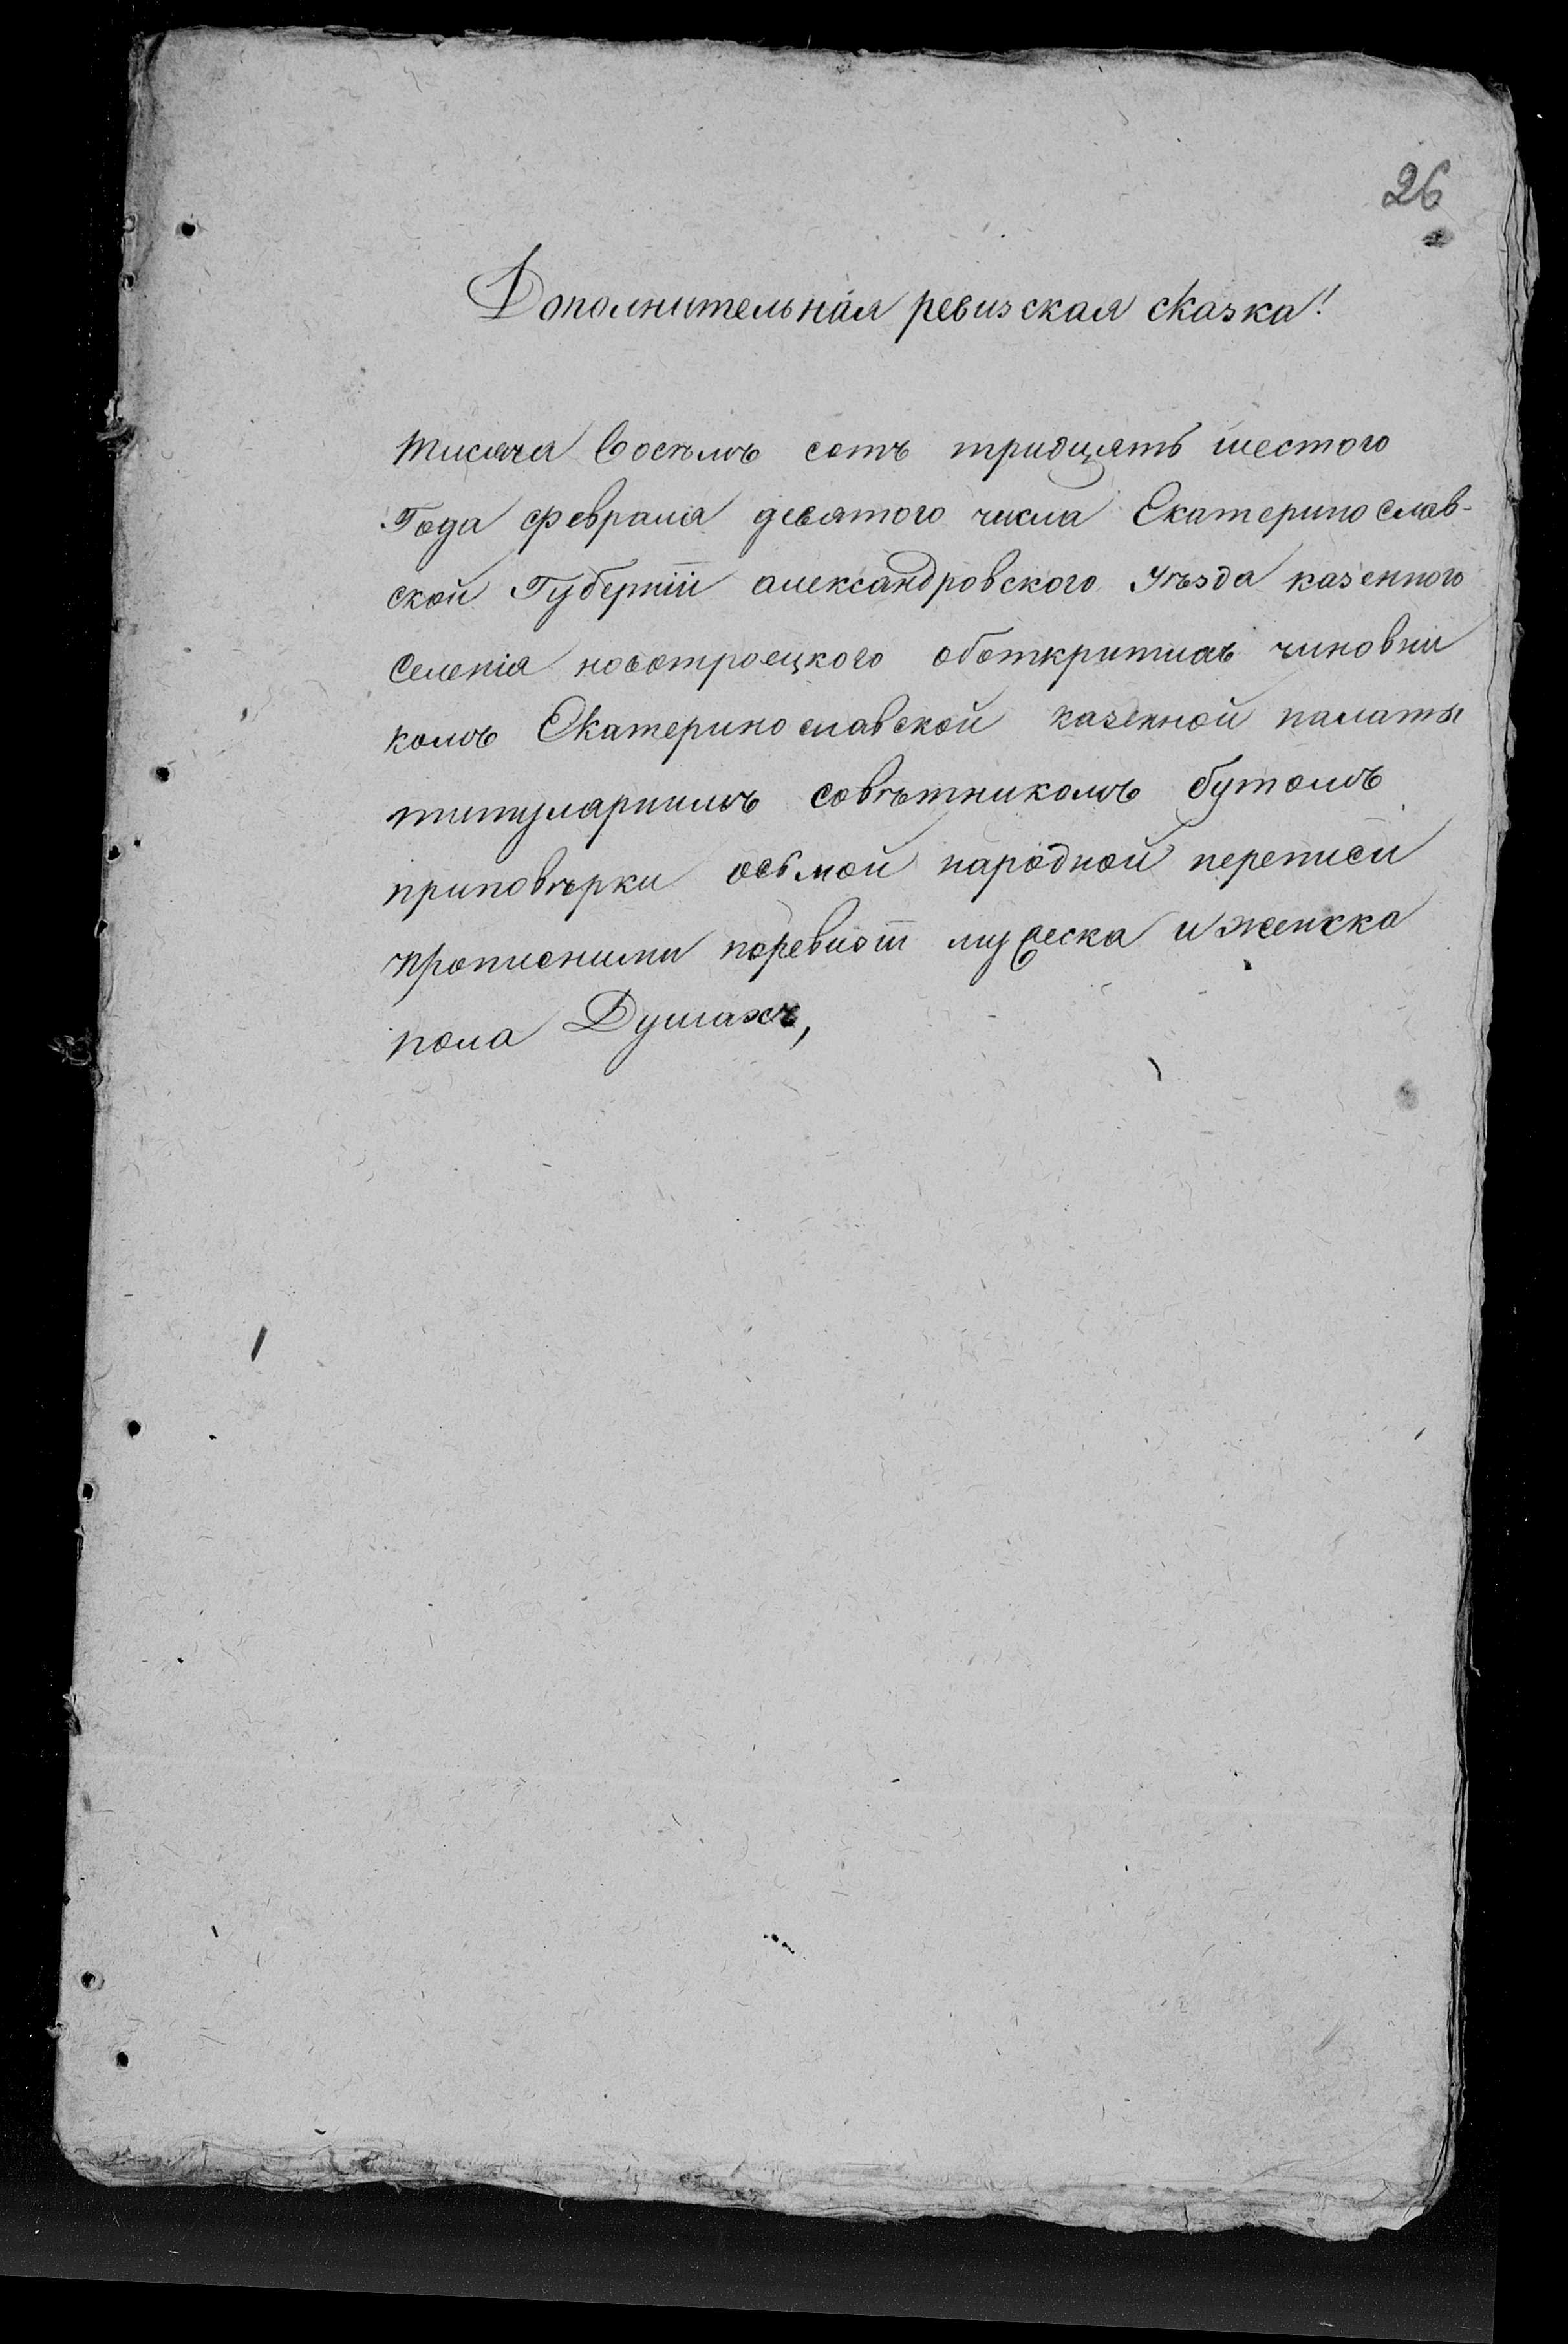 26
Дополнительная ревизская сказка!
тисяча восемъ сотъ тридцять шестого
Года февраля девятого числа Екатеринослав-
ской Губерніи александровского уѣзда казенного
Селенія новотроецкого оботкритихъ чиновни
комъ Екатеринославской казенной палаты
титулярнимъ совѣтникомъ бутомъ
приповѣрки осьмой народной переписи
прописними поревизіи мужеска и женска
пола Душахъ,